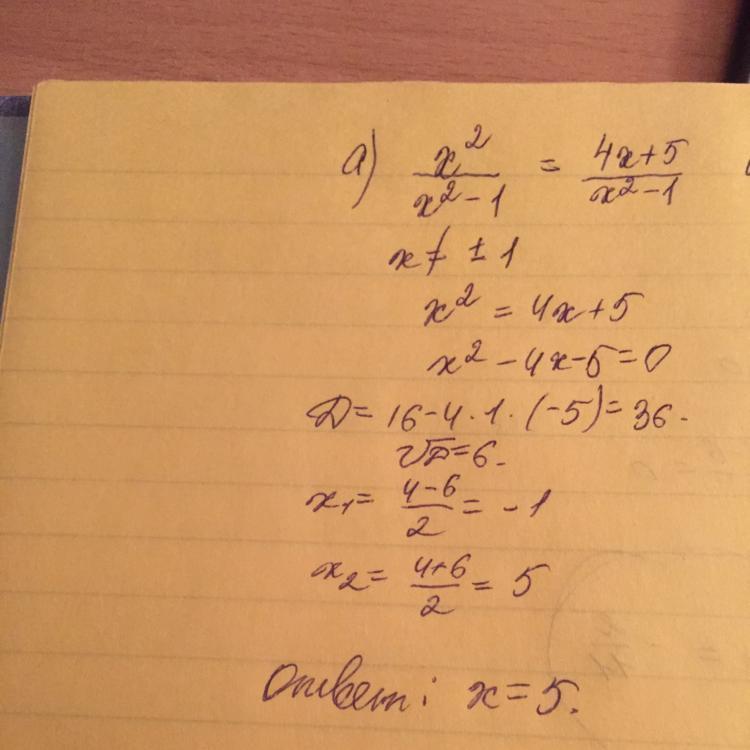 а) x²/(x²-1) = (4x+5)/(x²-1)
x ≠ ± 1
x² = 4x+5
x² - 4x - 5 = 0
D = 16 - 4 · 1 · (-5) = 36.
√D = 6.
x₁ = (4-6)/2 = -1
x₂ = (4+6)/2 = 5
Ответ: x = 5.